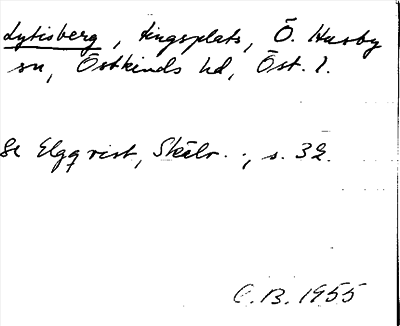 Lytisberg, tingsplats, Ö. Husby
sn, Östkinds hd, Öst. l.
Se Elgqvist, Skälv. , s. 32.
C.B. 1955